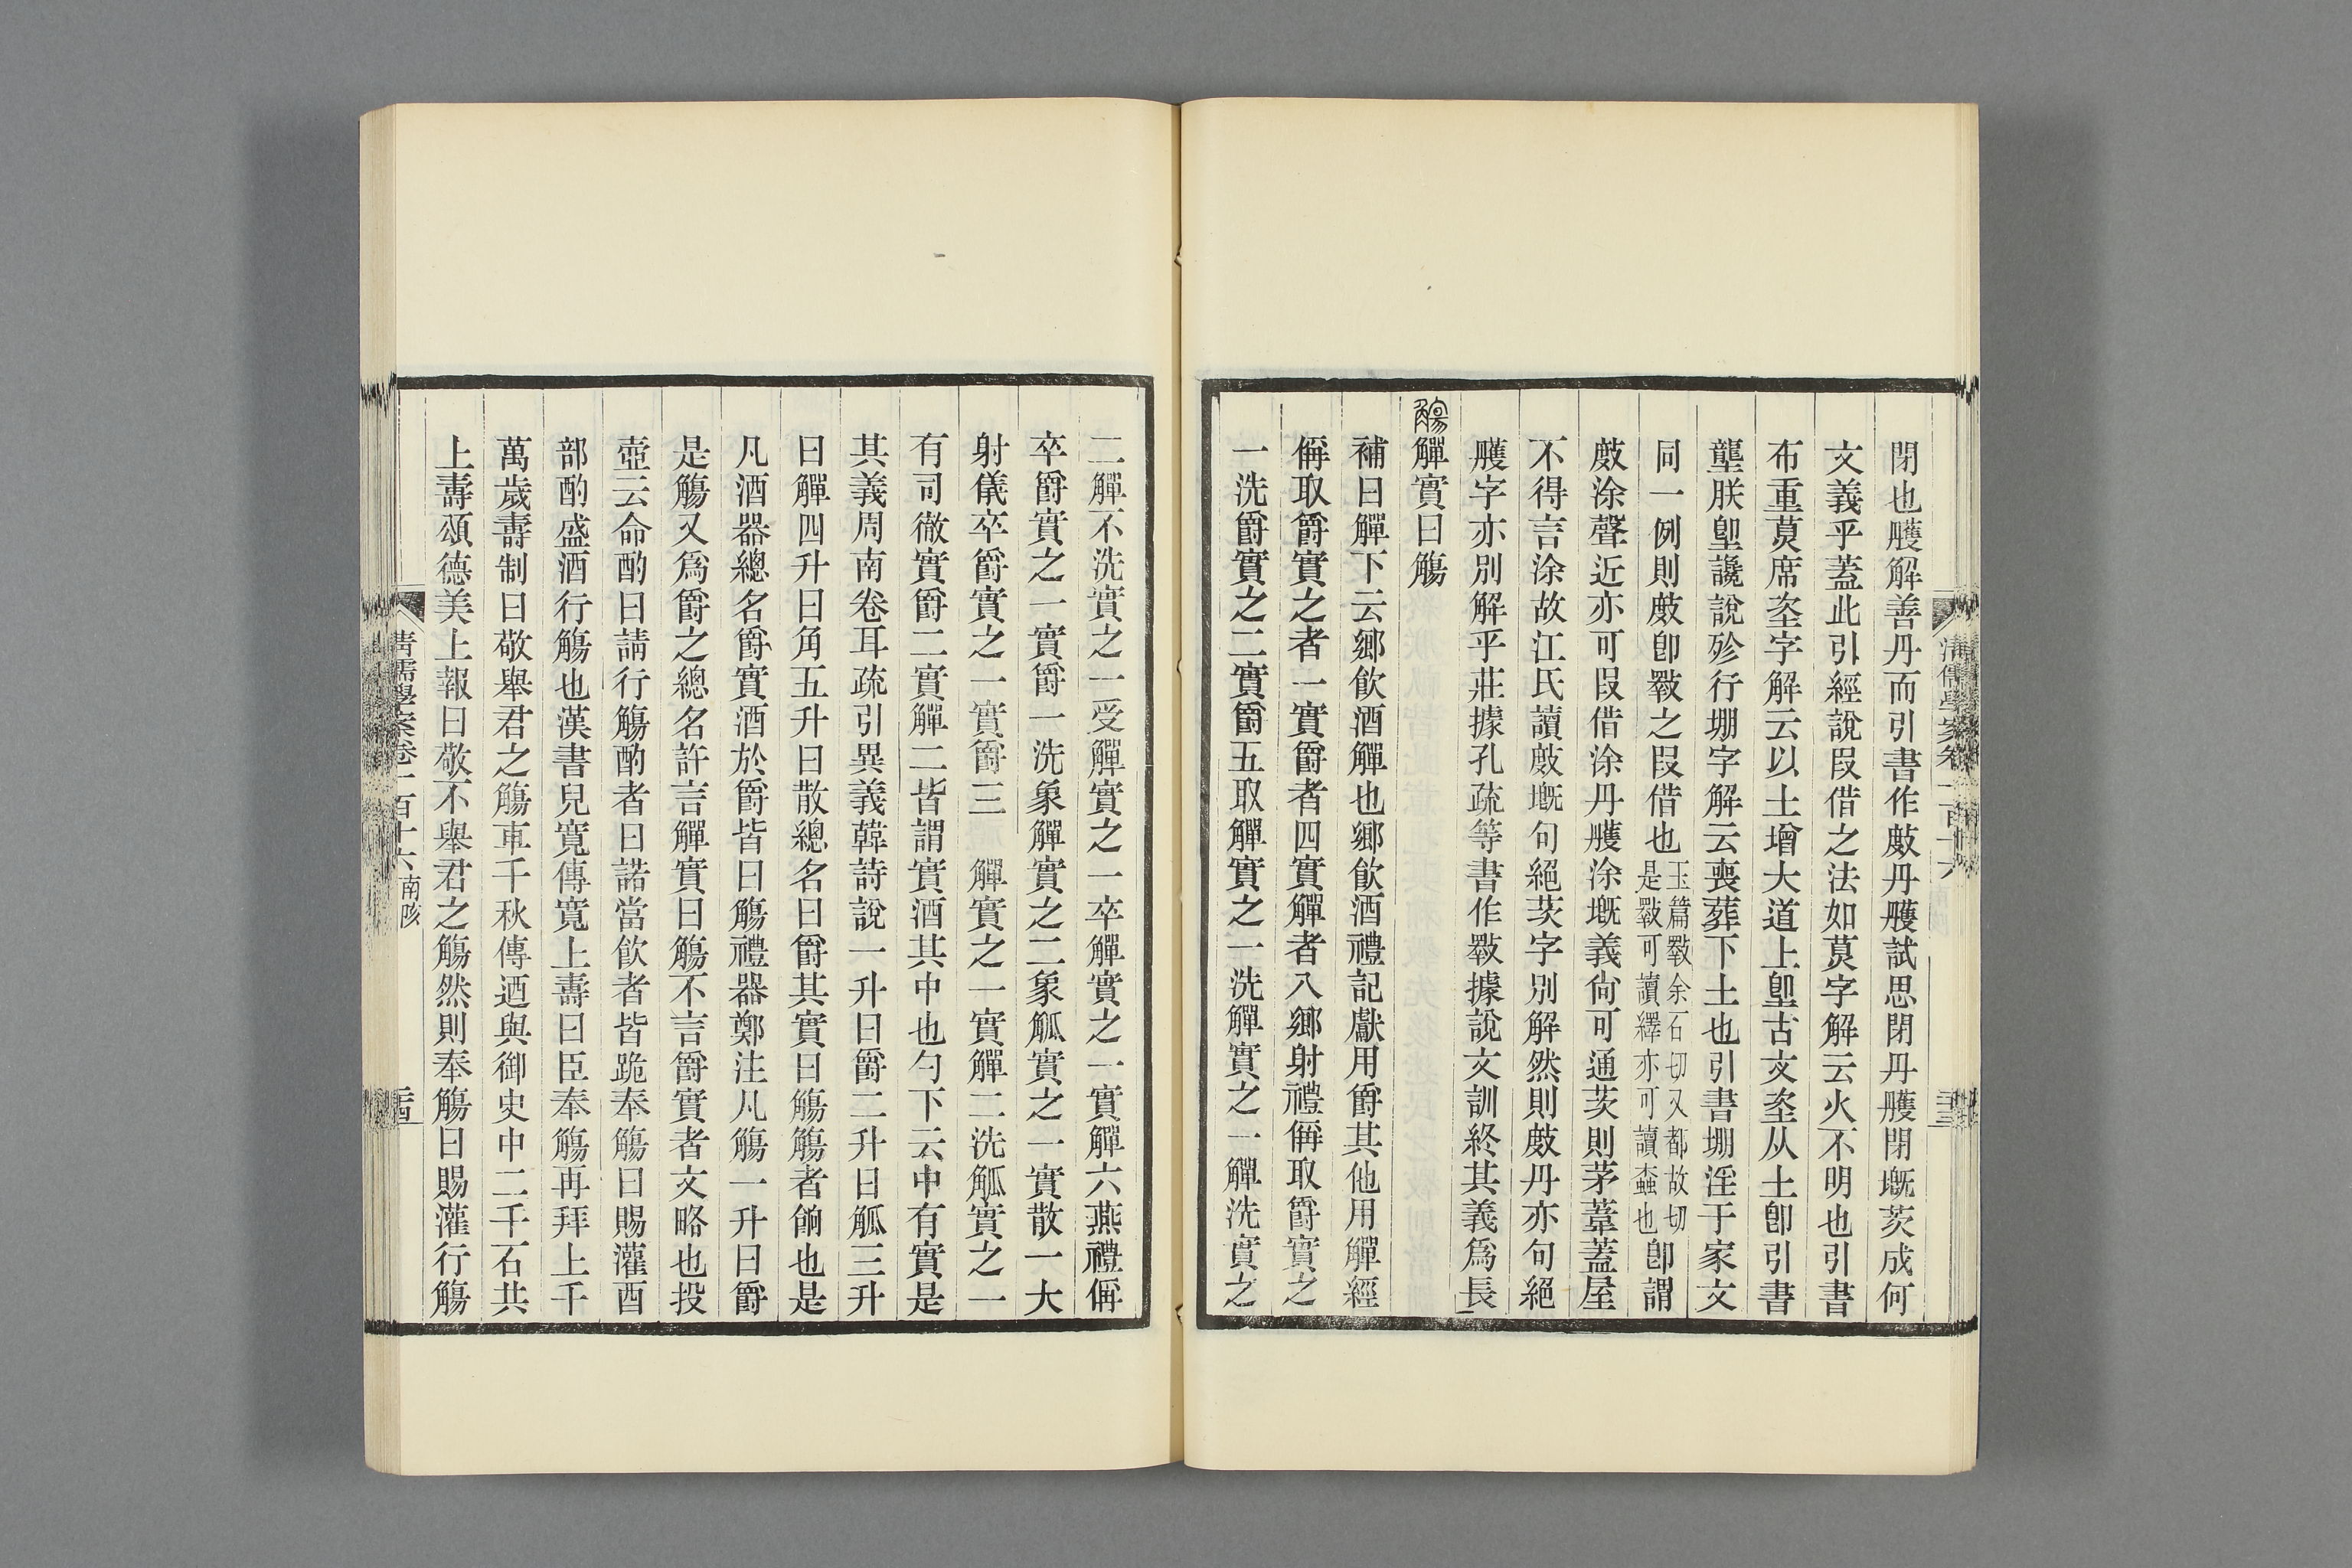 閉也雘解善丹而引書作斁丹雘試思閉丹雘閉墍茨成何
文義乎蓋此引經說叚借之法如莫字解云火不明也引書
布重莫席坴字解云以土增大道上聖古文坴从土卽引書
壟朕聖讒說殄行堋字解云喪葬下土也引書堋淫于家文
同一例則斁卽斁之叚借也玉篇斁余石切又都故切是斁可讀繹亦可讀螙也卽謂
斁涂聲近亦可叚借涂丹雘涂墍義尙可通茨則茅葦蓋屋
不得言涂故江氏讀斁墍句絕茨字別解然則斁丹亦句絕
雘字亦別解乎莊據孔疏等書作斁據說文訓終其義爲長
觴觶實曰觴
補曰觶下云鄉飮酒觶也鄉飮酒禮記獻用爵其他用觶經
偁取爵實之者一實爵者四實觶者八鄉射禮偁取爵實之
一洗爵實之二實爵五取觶實之一洗觶實之一觶洗實之
清儒學案卷二百十六
二觶不洗實之一受觶實之一卒觶實之一實觶六燕禮偁
卒爵實之一實爵一洗象觶實之二象觚實之一實散一大
射儀卒爵實之一實爵三觶實之一實觶二洗觚實之一
有司徹實爵二實觶二皆謂實酒其中也勺下云中有實是
其義周南卷耳疏引異義韓詩說一升曰爵二升曰觚三升
曰觶四升曰角五升曰散總名曰爵其實曰觴觴者餉也是
凡酒器總名爵實酒於爵皆曰觴禮器鄭注凡觴一升曰爵
是觴又爲爵之總名許言觶實曰觴不言爵實者文略也投
壺云命酌曰請行觴酌者曰諾當飮者皆跪奉觴曰賜灌酉
部酌盛酒行觴也漢書兒寬傳寬上壽曰臣奉觴再拜上千
萬歲壽制曰敬舉君之觴車千秋傳迺與御史中二千石共
上壽頌德美上報曰敬不舉君之觴然則奉觴曰賜灌行觴
清儒學案卷二百十六 南陔